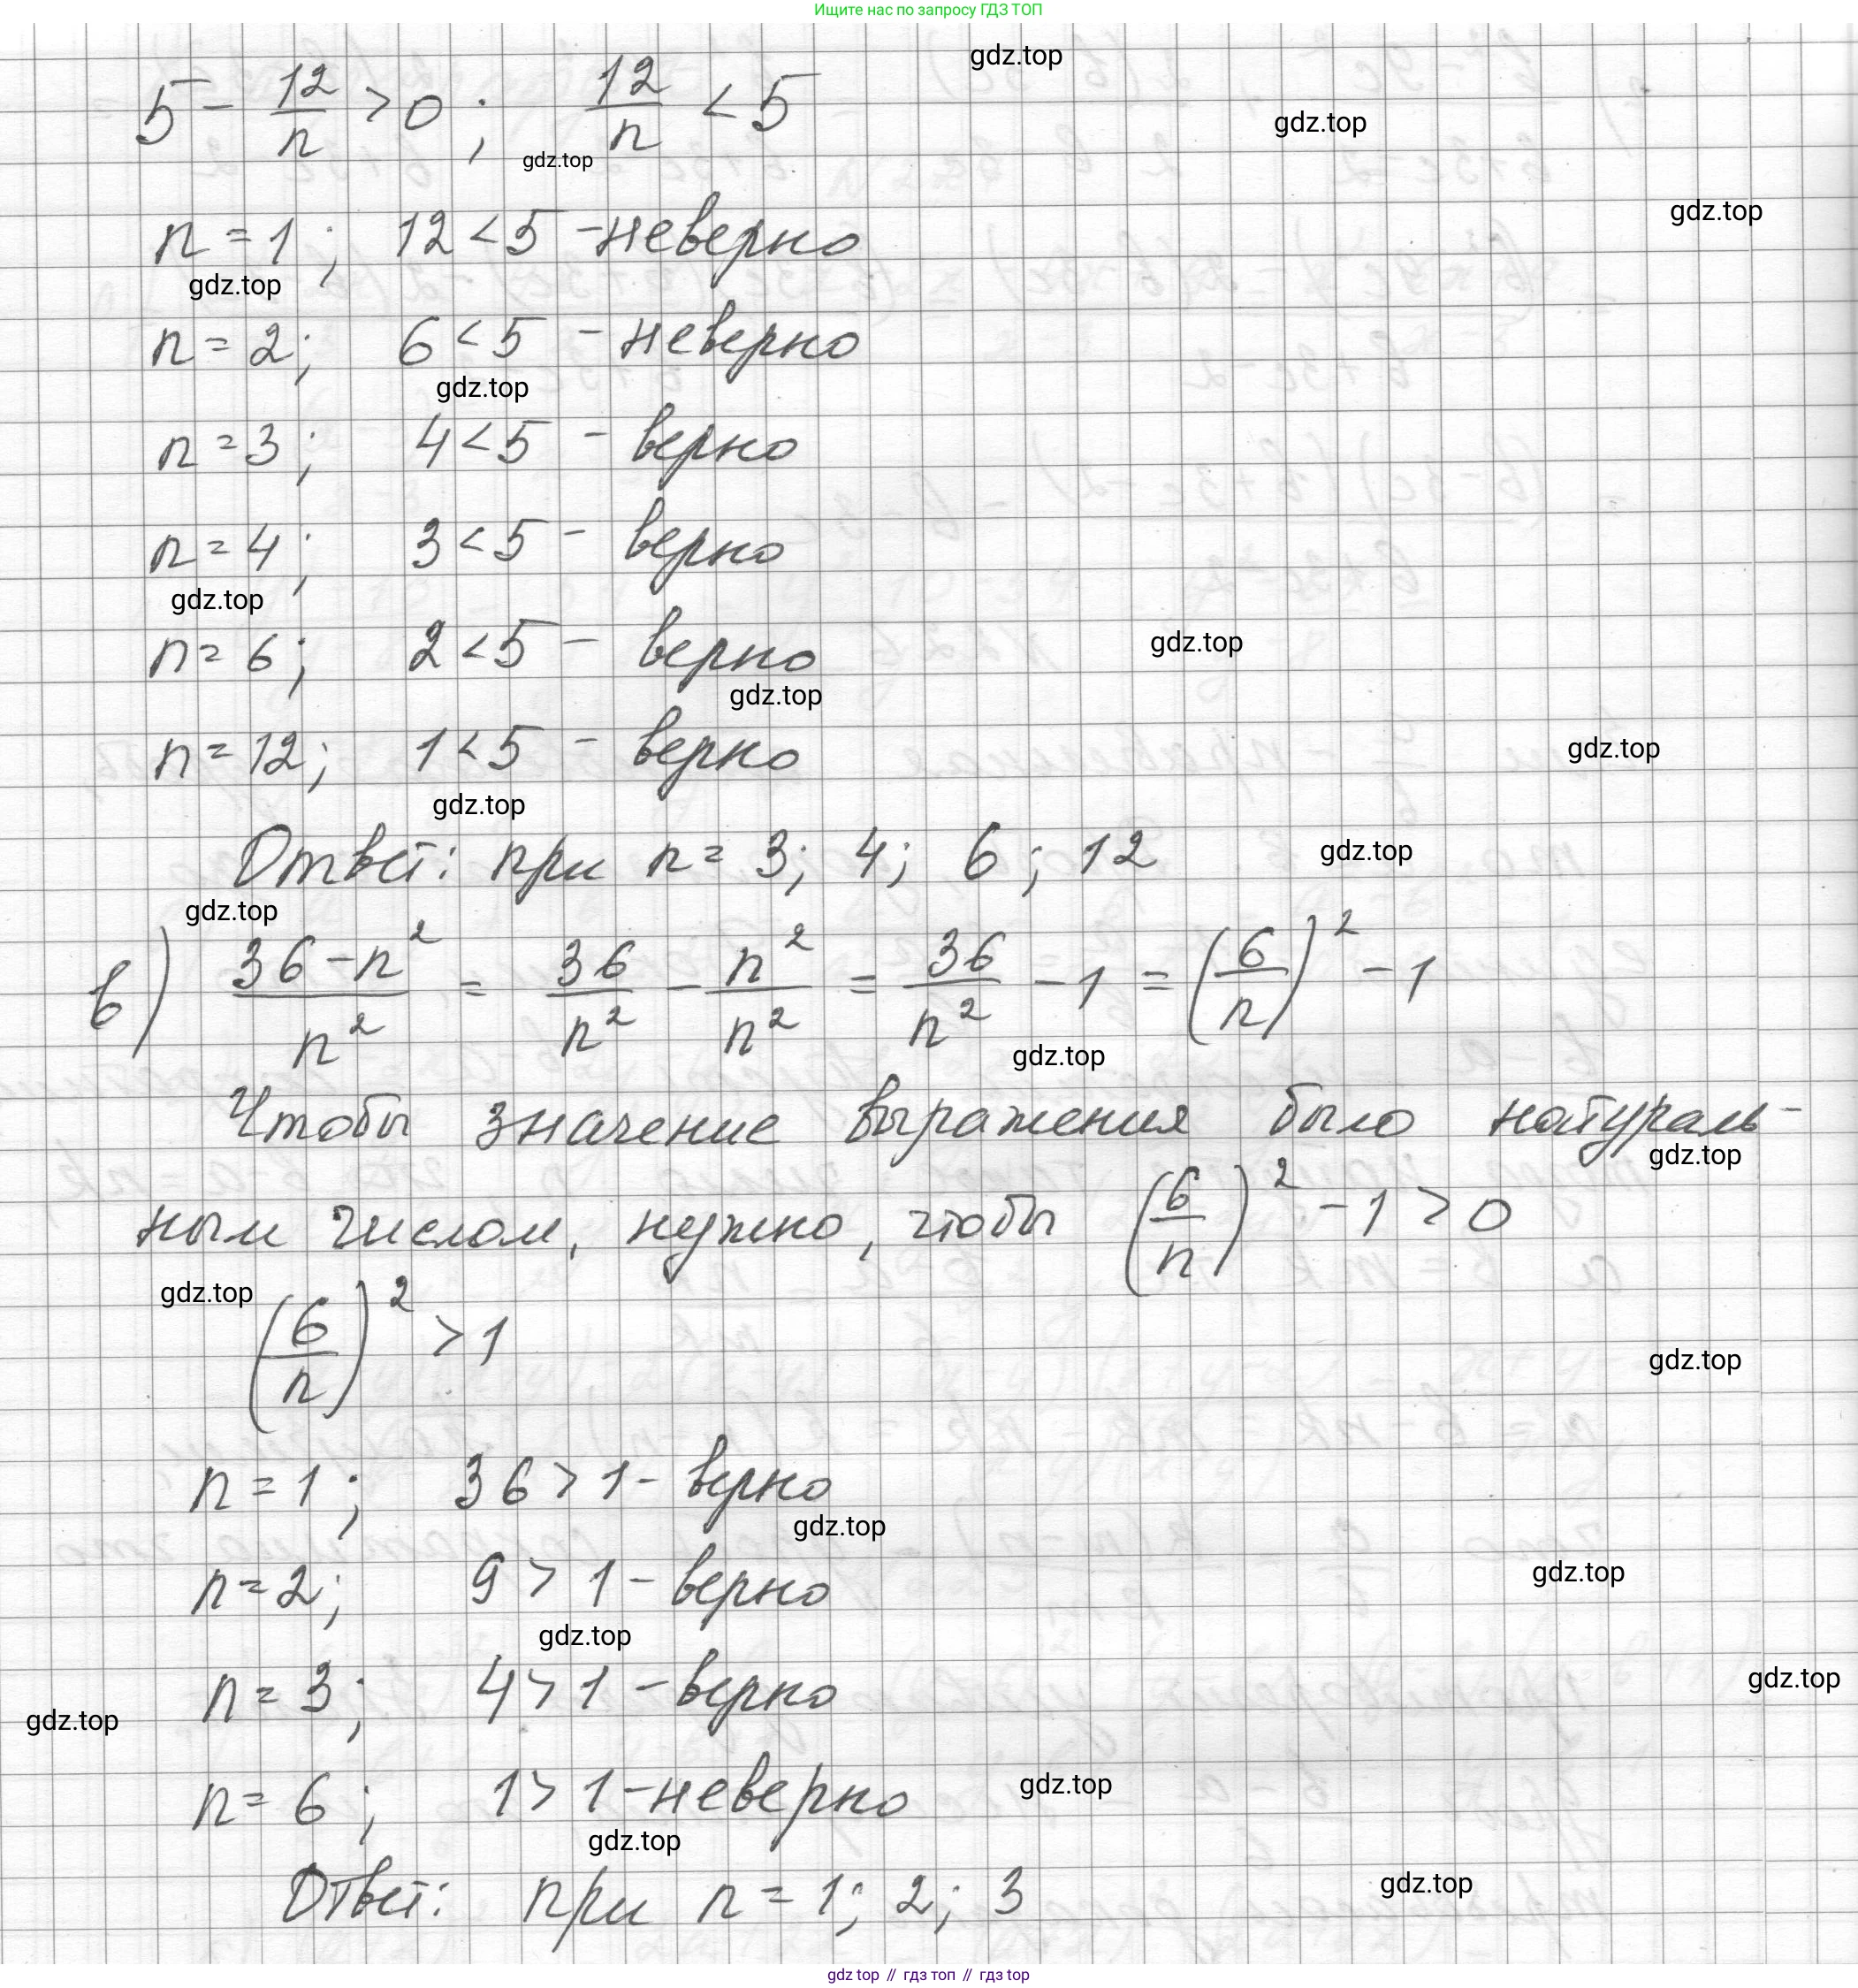 Ищите нас по запросу ГДЗ ТОП
gdz.top
5 - 12/n > 0 ; 12/n < 5
gdz.top
gdz.top
gdz.top
n = 1 ; 12 < 5 - неверно
gdz.top
n = 2; 6 < 5 - неверно
gdz.top
n = 3 ; 4 < 5 - верно
n = 4 ; 3 < 5 - верно
gdz.top
gdz.top
n = 6 ; 2 < 5 - верно
gdz.top
n = 12 ; 1 < 5 - верно
gdz.top
gdz.top
Ответ: при n = 3; 4; 6 ; 12
gdz.top
gdz.top
в) (36 - n²)/n² = 36/n² - n²/n² = 36/n² - 1 = (6/n)² - 1
gdz.top
Чтобы значение выражения было натураль-
gdz.top
ным числом, нужно, чтобы (6/n)² - 1 > 0
gdz.top
(6/n)² > 1
gdz.top
n = 1 ; 36 > 1 - верно
gdz.top
gdz.top
n = 2; 9 > 1 - верно
gdz.top
n = 3 ; 4 > 1 - верно
gdz.top
gdz.top
n = 6 ; 1 > 1 - неверно
gdz.top
gdz.top
Ответ: при n = 1; 2; 3
gdz.top
gdz.top // гдз топ // гдз top